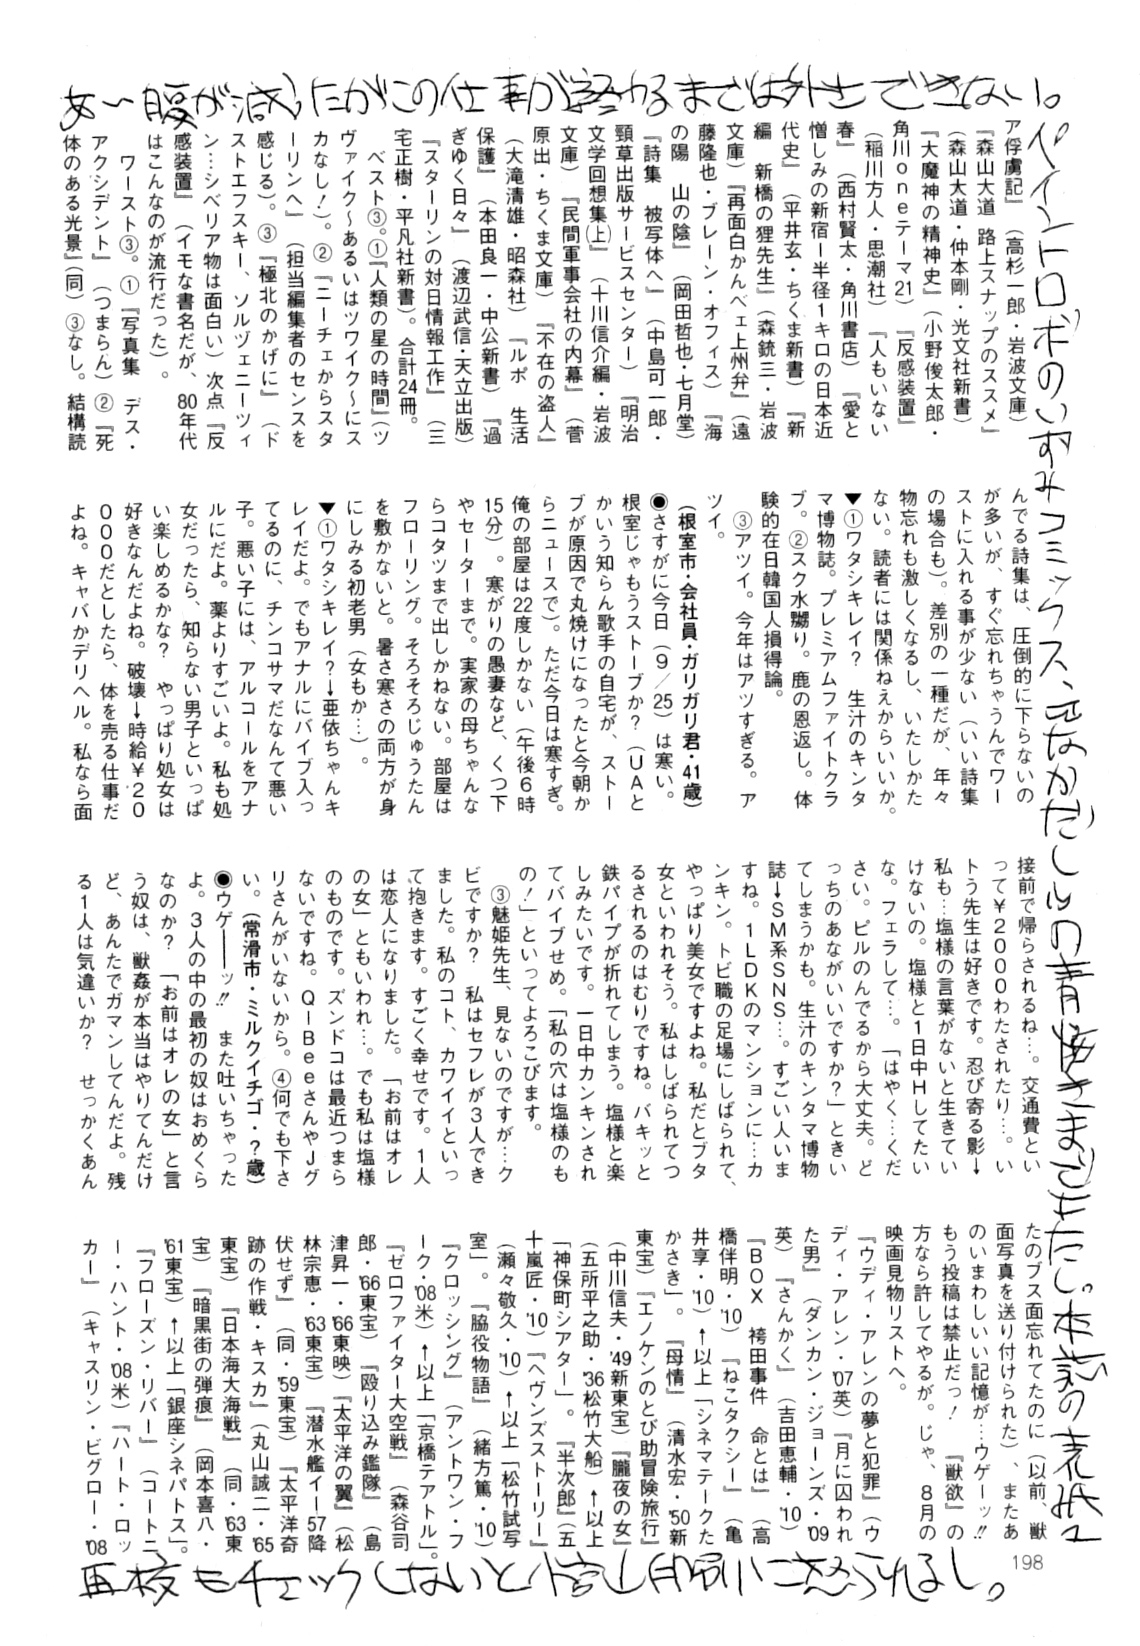 あ〜腹が減ったがこの仕事が終わるまでは外出できない。
ペイントロボのいずみコミックス、『なかだしの青
再校もチェックしないと
ア俘虜記』（高杉一郎・岩波文庫）
『森山大道　路上スナップのススメ』
（森山大道・仲本剛・光文社新書）
『大魔神の精神史』（小野俊太郎・
角川oneテーマ21）『反感装置』
（稲川方人・思潮社）『人もいない
春』（西村賢太・角川書店）『愛と
憎しみの新宿ー半径1キロの日本近
代史』（平井玄・ちくま新書）『新
編　新橋の狸先生』（森銑三・岩波
文庫）『再面白かんべェ上州弁』（遠
藤隆也・ブレーン・オフィス）『海
の陽　山の陰』（岡田哲也・七月堂）
『詩集　被写体へ』（中島可一郎・
頸草出版サービスセンター）『明治
文学回想集（上）』（十川信介編・岩波
文庫）『民間軍事会社の内幕』（菅
原出・ちくま文庫）『不在の盗人』
（大滝清雄・昭森社）『ルポ　生活
保護』（本田良一・中公新書）『過
ぎゆく日々』（渡辺武信・天立出版）
『スターリンの対日情報工作』（三
宅正樹・平凡社新書）。合計24冊。
　ベスト③。①『人類の星の時間』（ツ
ヴァイク〜あるいはツワイク〜にス
カなし！）。②『ニーチェからスタ
ーリンへ』（担当編集者のセンスを
感じる）。③『極北のかげに』（ド
ストエフスキー、ソルヴェニーツィ
ン…シベリア物は面白い）次点『反
感装置』（イモな書名だが、80年代
はこんなのが流行だった）。
　ワースト③。①『写真集　デス・
アクシデント』（つまらん）②『死
体のある光景』（同）③なし。結構読
んでる詩集は、圧倒的に下らないの
が多いが、すぐ忘れちゃうんでワー
ストに入れる事が少ない（いい詩集
の場合も）。差別の一種だが、年々
物忘れも激しくなるし、いたしかた
ない。読者には関係ねえからいいか。
▼①ワタシキレイ？　生汁のキンタ
マ博物誌。プレミアムファイトクラ
ブ。②スク水嬲り。鹿の恩返し。体
験的在日韓国人損得論。
　③アツイ。今年はアツすぎる。ア
ツイ。
（根室市・会社員・ガリガリ君・41歳）
●さすがに今日（9／25）は寒い。
根室じゃもうストーブか？（UAと
かいう知らん歌手の自宅が、ストー
ブが原因で丸焼けになったと今朝か
らニュースで）。ただ今日は寒すぎ。
俺の部屋は22度しかない（午後6時
15分）。寒がりの愚妻など、くつ下
やセーターまで。実家の母ちゃんな
らコタツまで出しかねない。部屋は
フローリング。そろそろじゅうたん
を敷かないと。暑さ寒さの両方が身
にしみる初老男（女もか…）。
▼①ワタシキレイ？→亜依ちゃんキ
レイだよ。でもアナルにバイブ入っ
てるのに、チンコサマだなんて悪い
子。悪い子には、アルコールをアナ
ルにだよ。薬よりすごいよ。私も処
女だったら、知らない男子といっぱ
い楽しめるかな？　やっぱり処女は
好きなんだよね。破壊→時給¥20
00だとしたら、体を売る仕事だ
よね。キャバかデリヘル。私なら面
接前で帰らされるね…。交通費とい
って¥2000わたされたり…。い
トう先生は好きです。忍び寄る影→
私も…塩様の言葉がないと生きてい
けないの。塩様と1日中Hしてたい
な。フェラして…。「はやく…くだ
さい。ピルのんでるから大丈夫。ど
っちのあながいいですか？」ときい
てしまうかも。生汁のキンタマ博物
誌→SM系SNS…。すごい人いま
すね。1LDKのマンションに…カ
ンキン。トビ職の足場にしばられて、
やっぱり美女ですよね。私だとブタ
女といわれそう。私はしばられてつ
るされるのはむりですね。バキッと
鉄パイプが折れてしまう。塩様と楽
しみたいです。一日中カンキンされ
てバイブせめ。「私の穴は塩様のも
の！」といってよろこびます。
　③魅姫先生、見ないのですが…ク
ビですか？　私はセフレが3人でき
ました。私のコト、カワイイといっ
て抱きます。すごく幸せです。1人
は恋人になりました。「お前はオレ
の女」ともいわれ…。でも私は塩様
のものです。ズンドコは最近つまら
ないですね。Q-BeeさんやJグ
リさんがいないから。④何でも下さ
い。（常滑市・ミルクイチゴ・？歳）
●ウゲ――ッ!!　また吐いちゃった
よ。3人の中の最初の奴はおめくら
なのか？「お前はオレの女」と言
う奴は、獣姦が本当はやりてんだけ
ど、あんたでガマンしてんだよ。残
る1人は気違いか？　せっかくあん
たのブス面忘れてたのに（以前、獣
面写真を送り付けられた）、またあ
のいまわしいい記憶が…ウゲーッ!!
もう投稿は禁止だっ！　『獣欲』の
方なら許してやるが。じゃ、8月の
映画見物リストへ。
『ウディ・アレンの夢と犯罪』（ウ
ディ・アレン・'07英）『月に囚われ
た男』（ダンカン・ジョーンズ・'09
英）『さんかく』（吉田恵輔・'10）
『BOX　袴田事件　命とは』（高
橋伴明・'10）『ねこタクシー』（亀
井享・'10）↑以上「シネマテークた
かさき」。『母情』（清水宏・'50新
東宝）『エノケンのとび助冒険旅行』
（中川信夫・'49新東宝）『朧夜の女』
（五所平之助・'36松竹大船）↑以上
「神保町シアター」。『半次郎』（五
十嵐匠・'10）『ヘヴンズストーリー』
（瀬々敬久・'10）↑以上「松竹試写
室」。『脇役物語』（緒方篤・'10）
『クロッシング』（アントワン・フ
ーク・'08米）↑以上「京橋テアトル」。
『ゼロファイター大空戦』（森谷司
郎・'66東宝）『殴り込み艦隊』（島
津昇一・'66東映）『太平洋の翼』（松
林宗恵・'63東宝）『潜水艦イー57降
伏せず』（同・'59東宝）『太平洋奇
跡の作戦・キスカ』（丸山誠二・'65
東宝）『日本海大海戦』（同・'63東
宝）『暗黒街の弾痕』（岡本喜八・
'61東宝）↑以上「銀座シネパトス」。
『フローズン・リバー』（コートニ
ー・ハント・'08米）『ハート・ロッ
カー』（キャスリン・ビグロー・'08
198